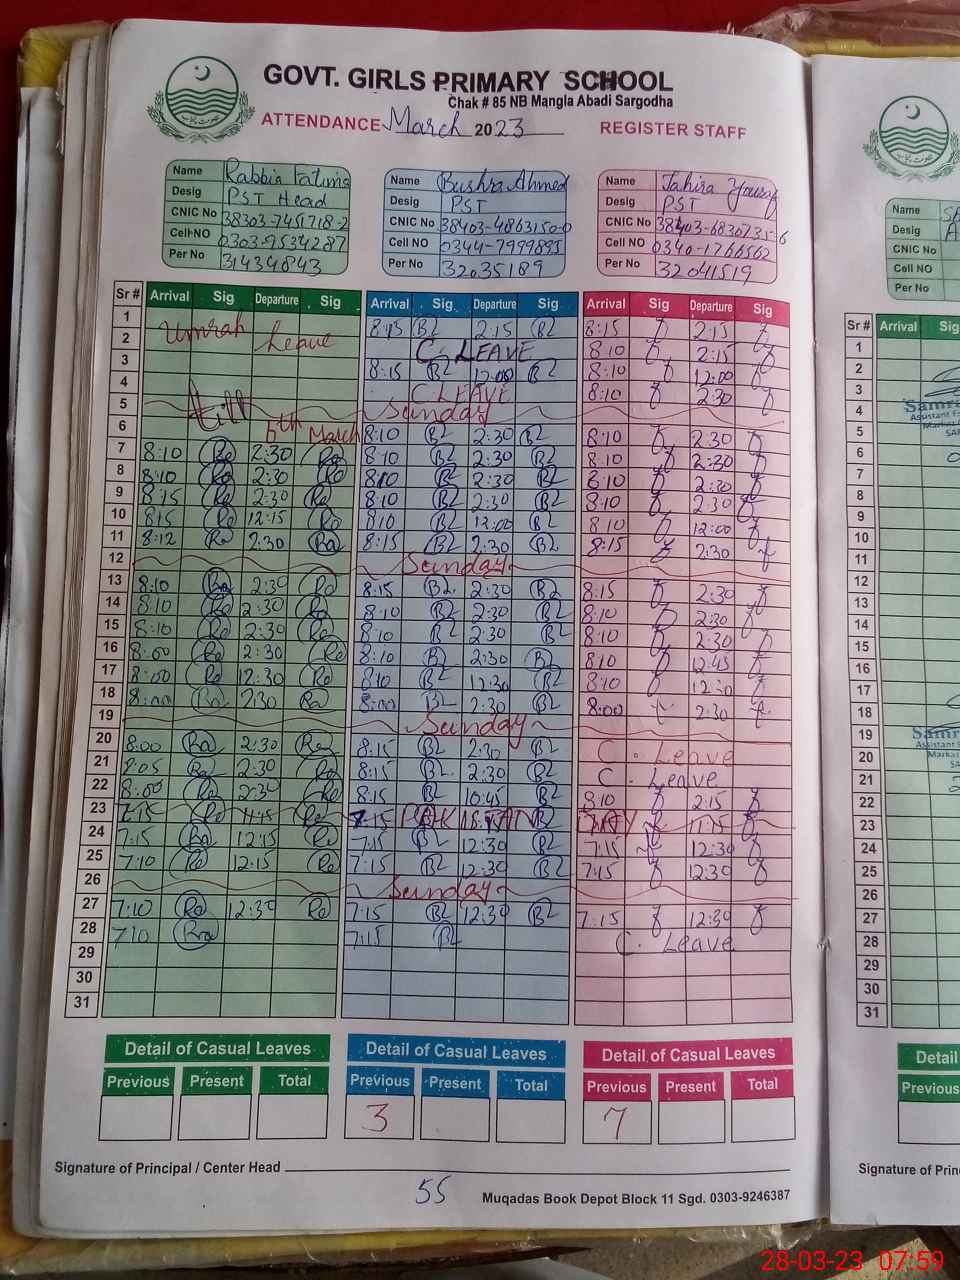 GOVT. GIRLS PRIMARY SCHOOL
Chak # 85 NB Mangla Abadi Sargodha
ATTENDANCE March 2023 REGISTER STAFF
Name Rabbia Fatima
Desig PST Head
CNIC No 38303-7451718-2
Cell NO 0303-9534287
Per No 31434843
Name Bushra Ahmed
Desig PST
CNIC No 38403-4863150-0
Cell NO 0344-7999895
Per No 32035189
Name Tahira Yousaf
Desig PST
CNIC No 38403-6830735-6
Cell NO 0340-1766562
Per No 32041519
Sr # Arrival Sig Departure Sig Arrival Sig Departure Sig Arrival Sig Departure Sig
1 8:15 2:15 8:15 2:15
2 Umrah Leave C. LEAVE 8:10 2:15
3 8:15 12:00 8:10 12:00
4 C LEAVE 8:10 2:30
5 till Sunday
6 6th March 8:10 2:30 8:10 2:30
7 8:10 2:30 8:10 2:30 8:10 2:30
8 8:10 2:30 8:10 2:30 8:10 2:30
9 8:15 2:30 8:10 2:30 8:10 2:30
10 8:15 12:15 8:10 12:00 8:10 12:00
11 8:12 2:30 8:15 2:30 8:15 2:30
12 Sunday
13 8:10 2:30 8:15 2:30 8:15 2:30
14 8:10 2:30 8:10 2:30 8:10 2:30
15 8:10 2:30 8:10 2:30 8:10 2:30
16 8:00 2:30 8:10 2:30 8:10 12:45
17 8:00 12:30 8:10 12:30 8:10
18 8:00 2:30 8:00 2:30 8:00 2:30
19 Sunday
20 8:00 2:30 8:15 2:30 C. Leave
21 8:05 2:30 8:15 2:30 C. Leave
22 8:00 2:30 8:15 10:45 8:10 2:15
23 7:15 11:15 7:15 PAKISTAN DAY 11:15
24 7:15 12:15 7:15 12:30 7:15 12:30
25 7:10 12:15 7:15 12:30 7:15 12:30
26 Sunday
27 7:10 12:30 7:15 12:30 7:15 12:30
28 7:10 7:15 C. Leave
29
30
31
Detail of Casual Leaves Detail of Casual Leaves Detail of Casual Leaves
Previous Present Total Previous Present Total Previous Present Total
3 7
Signature of Principal / Center Head
55
Muqadas Book Depot Block 11 Sgd. 0303-9246387
Name
Desig
CNIC No
Cell NO
Per No
Sr # Arrival
1
2
3
4
5
6
7
8
9
10
11
12
13
14
15
16
17
18
19
20
21
22
23
24
25
26
27
28
29
30
31
Detail
Previous
28-03-23 07:59